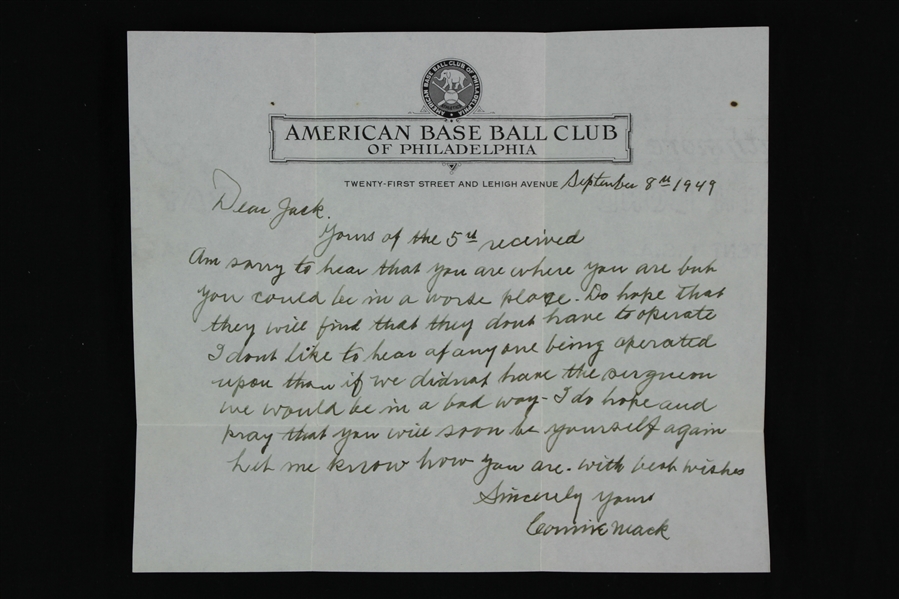 AMERICAN BASE BALL CLUB OF PHILADELPHIA
AMERICAN BASE BALL CLUB
OF PHILADELPHIA
TWENTY-FIRST STREET AND LEHIGH AVENUE September 8th 1949
Dear Jack.
Yours of the 5th received
Am sorry to hear that you are where you are but
you could be in a worse place. Do hope that
they will find that they dont have to operate
I dont like to hear of anyone being operated
upon than if we didnot have the surgueon
we would be in a bad way - I do hope and
pray that you will soon be yourself again
Let me know how you are. with best wishes
Sincerely yours
Connie Mack